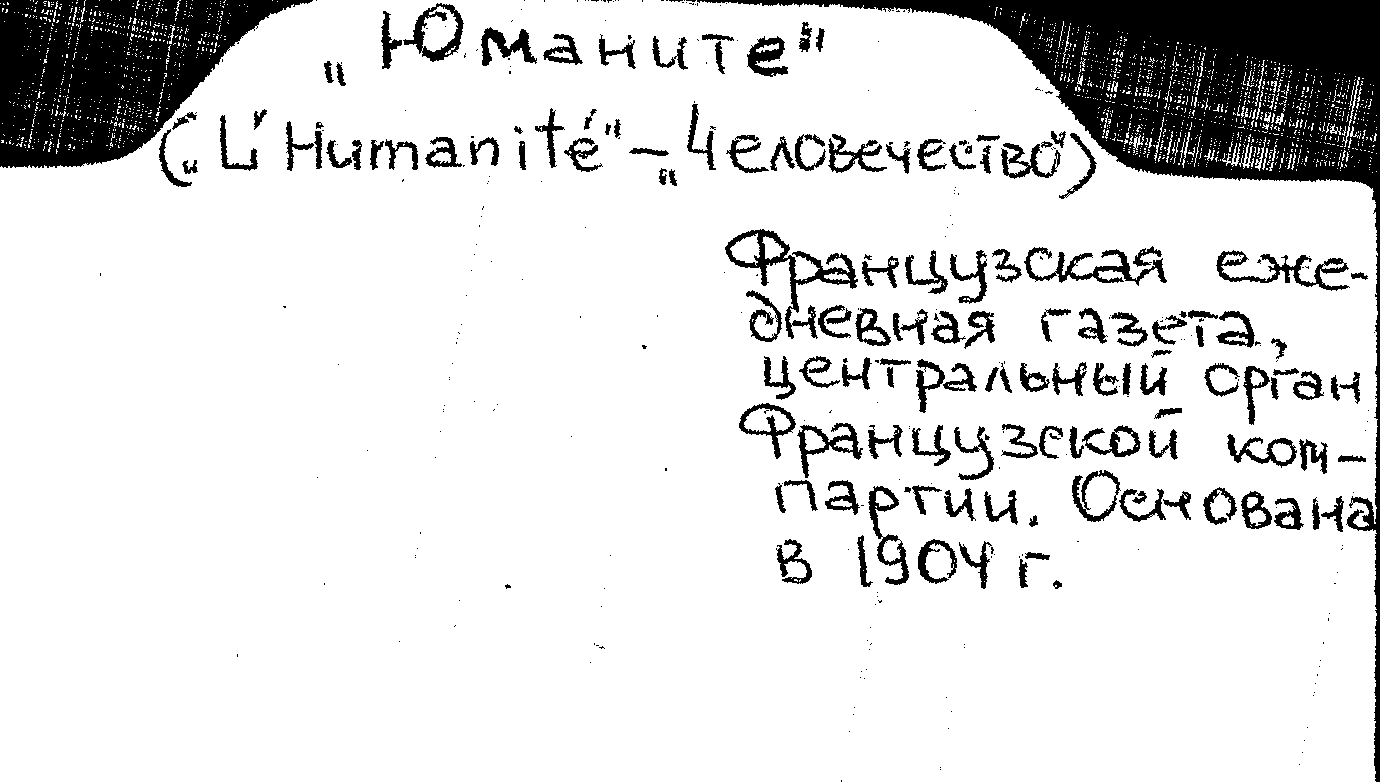 „Юманите"
(„L'Humanité" – „Человечество")
Французская еже-
дневная газета,
центральный орган
Французской ком-
партии. Основана
в 1904 г.